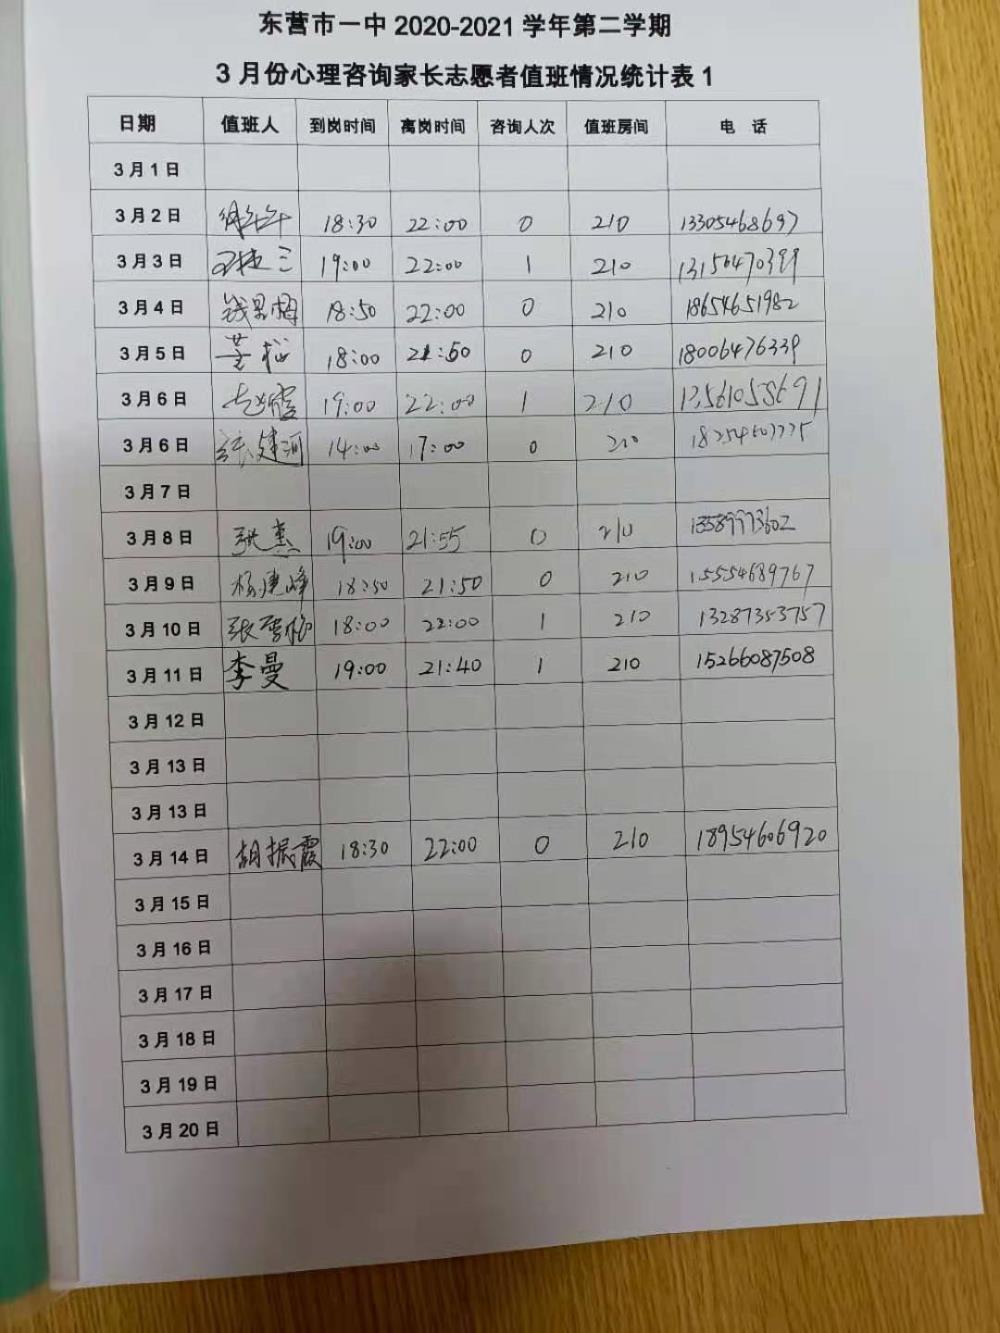 东营市一中 2020-2021 学年第二学期
3 月份心理咨询家长志愿者值班情况统计表 1
日期 值班人 到岗时间 离岗时间 咨询人次 值班房间 电 话
3 月 1 日
3 月 2 日 18:30 22:00 0 210 13305468697
3 月 3 日 19:00 22:00 1 210
3 月 4 日 18:50 22:00 0 210 18654651982
3 月 5 日 董松 18:00 21:50 0 210 18006476339
3 月 6 日 19:00 22:00 1 210
3 月 6 日 张建河 14:00 17:00 0 210
3 月 7 日
3 月 8 日 张惠 19:00 21:55 0 210
3 月 9 日 杨建峰 18:50 21:50 0 210 15554689767
3 月 10 日 18:00 22:00 1 210 13287353757
3 月 11 日 李曼 19:00 21:40 1 210 15266087508
3 月 12 日
3 月 13 日
3 月 13 日
3 月 14 日 胡振霞 18:30 22:00 0 210 18954606920
3 月 15 日
3 月 16 日
3 月 17 日
3 月 18 日
3 月 19 日
3 月 20 日